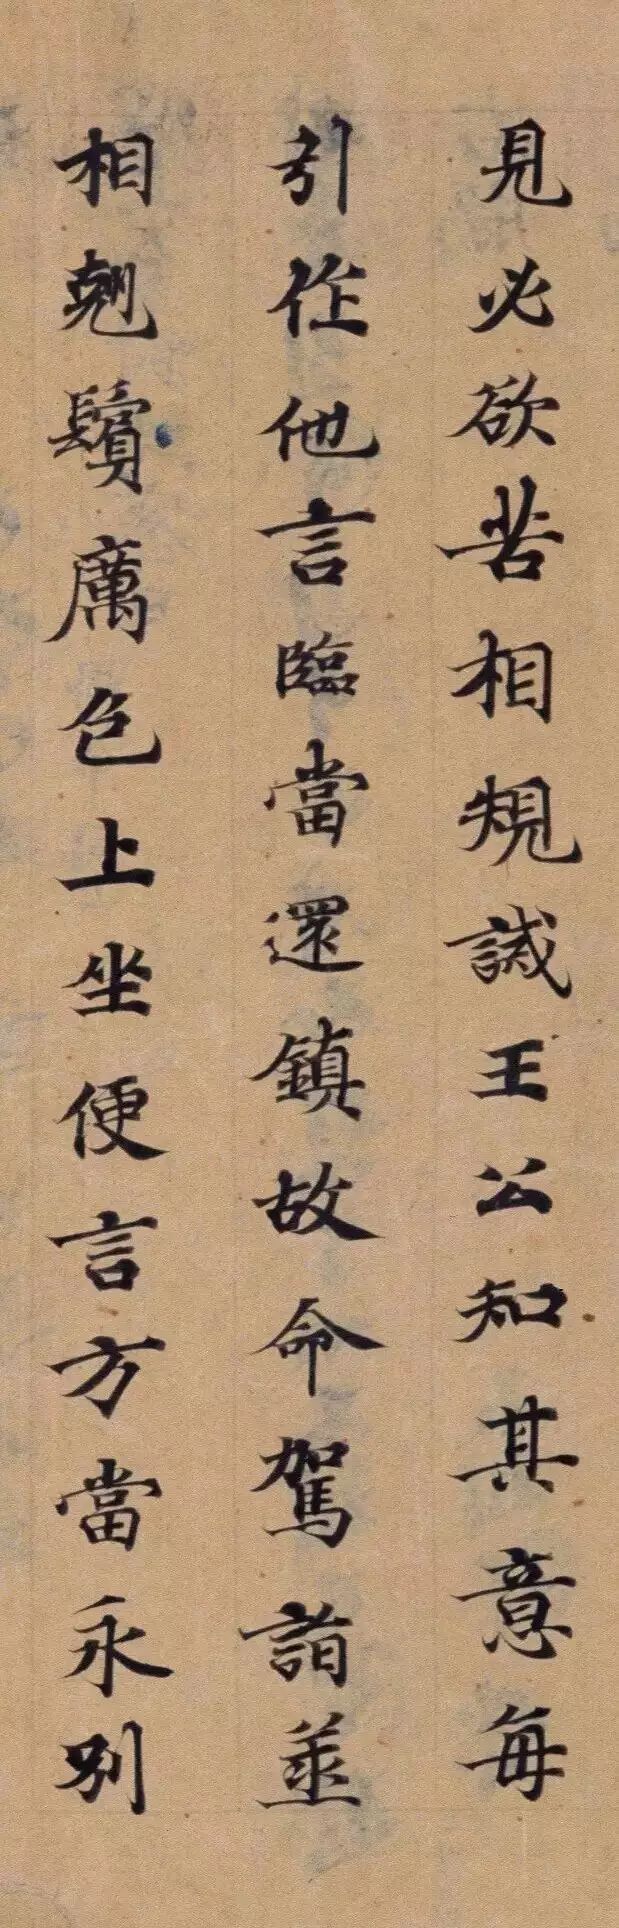 見必欲苦相規誡王公知其意每
引作他言臨當還鎮故命駕詣丞
相剋鬢厲色上坐便言方當永別